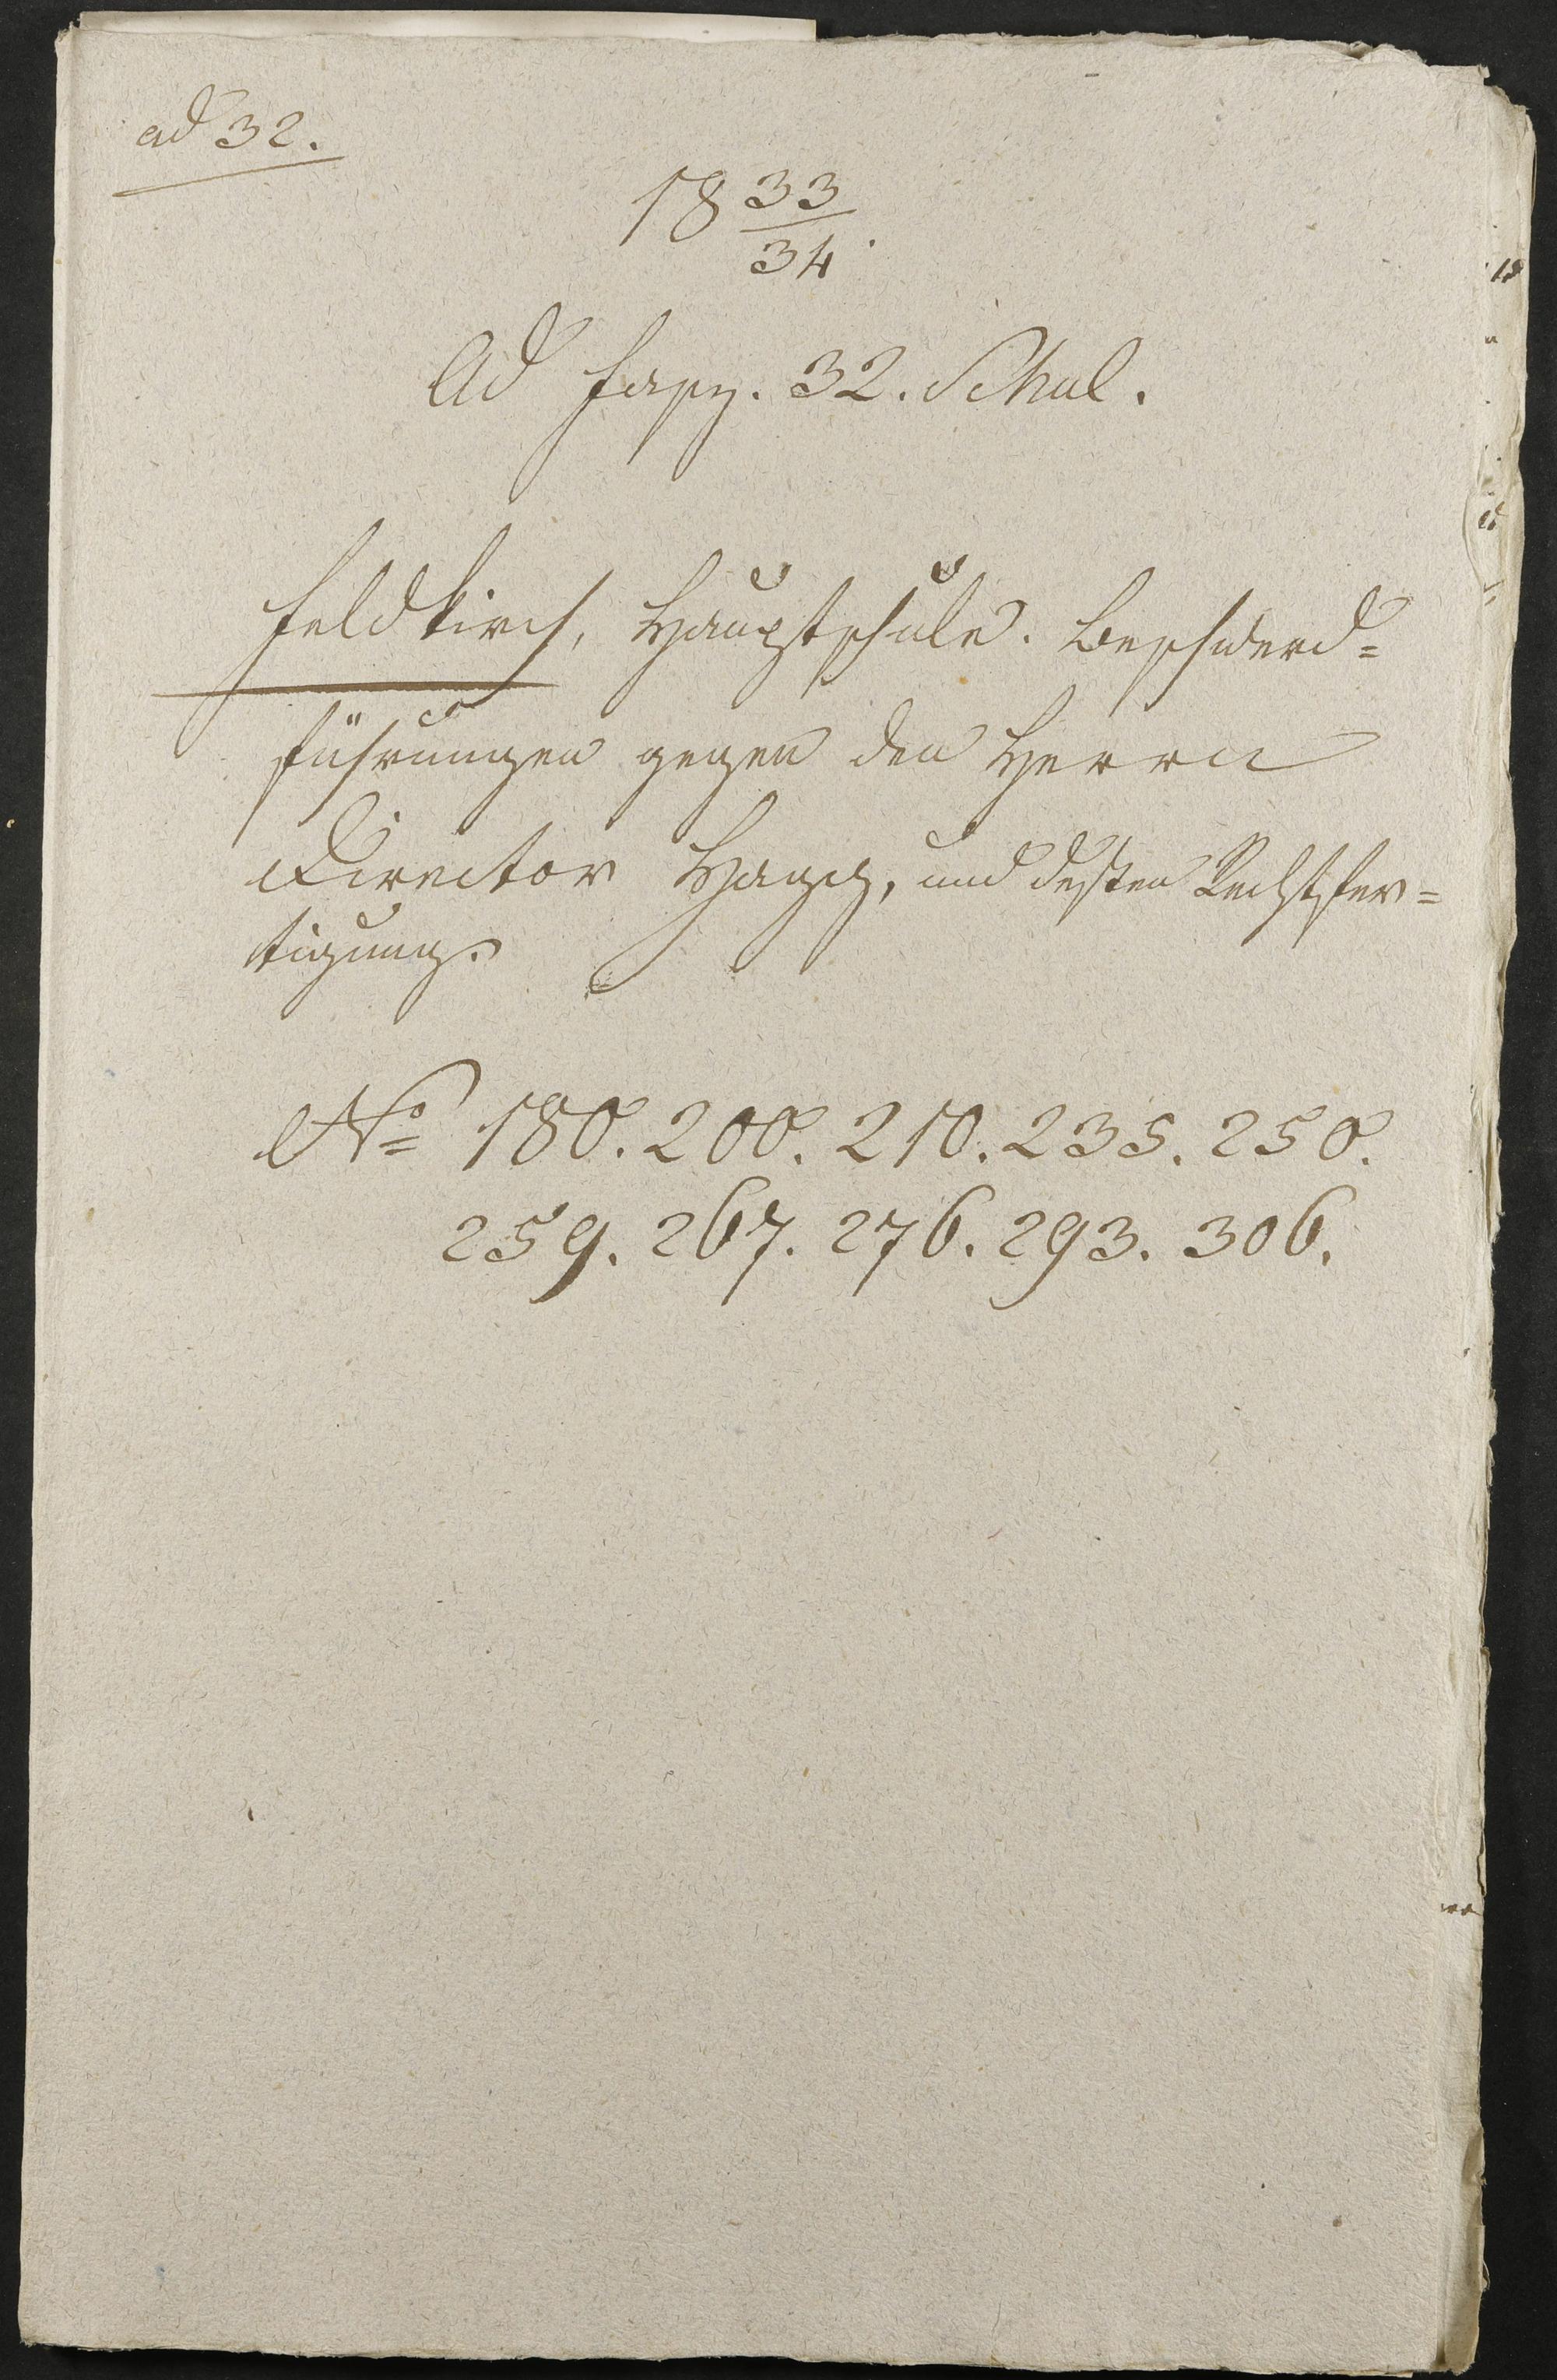 ad 32.
18 33/34.
Ad fasz. 32. Schul.
Feldkirch, Hauptschule. Beschwerd=
führungen gegen den Herrn
Director Hagg, und dessen Rechtfer=
tigung.
No 180. 200. 210. 235. 250.
259. 267. 276. 293. 306.